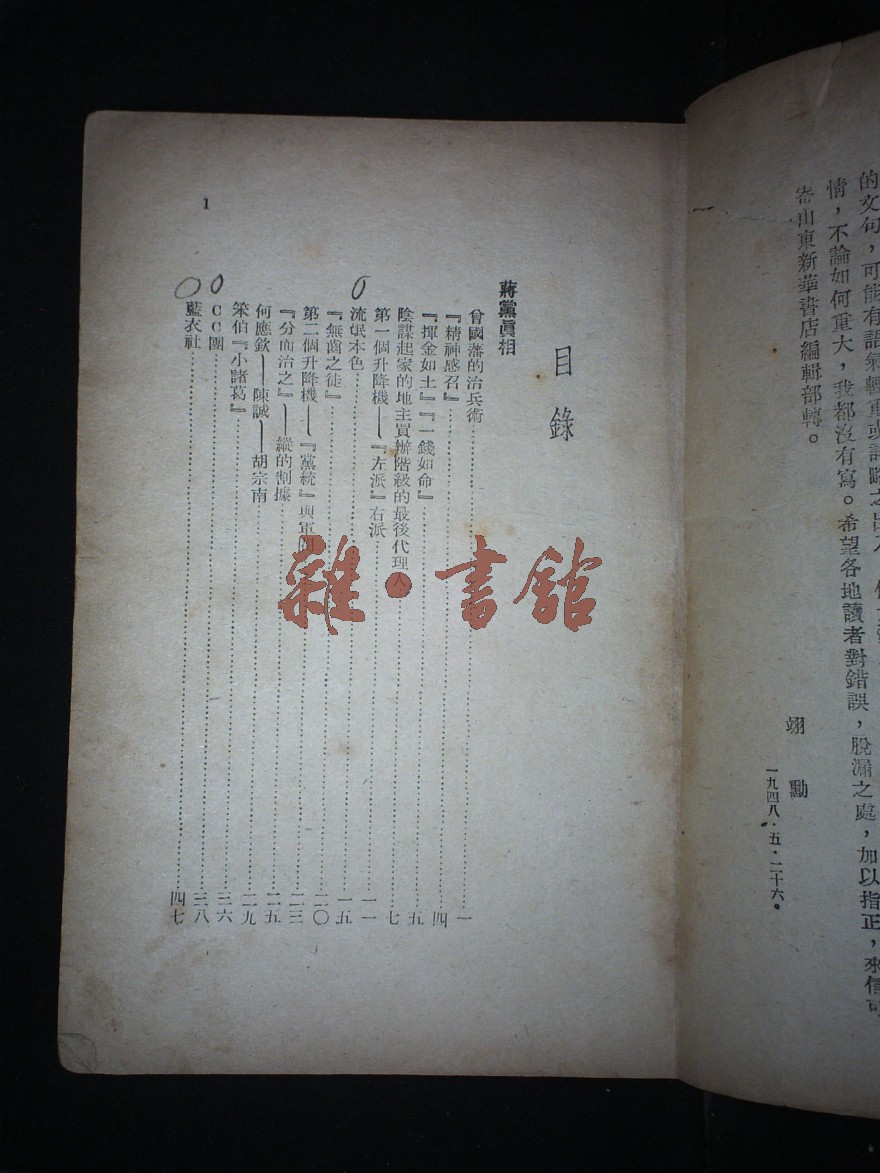 的文句，可能有語氣輕重或詳略之
情，不論如何重大，我都沒有寫。希望各地讀者對錯誤，脫漏之處，加以指正，來信可
寄山東新華書店編輯部轉。
翊勳
一九四八·五·二十六。
目錄
蔣黨眞相
曾國藩的治兵術……一
『精神感召』……四
『揮金如土』『一錢如命』……五
陰謀起家的地主買辦階級的最後代理人……七
第一個升降機——『左派』右派……一一
流氓本色……一五
『無齒之徒』……二〇
第二個升降機——『黨統』與軍……二三
『分而治之』——縱的割據……二五
何應欽——陳誠——胡宗南……二九
笨伯『小諸葛』……三六
CC團……三八
藍衣社……四七
1
雜·書館